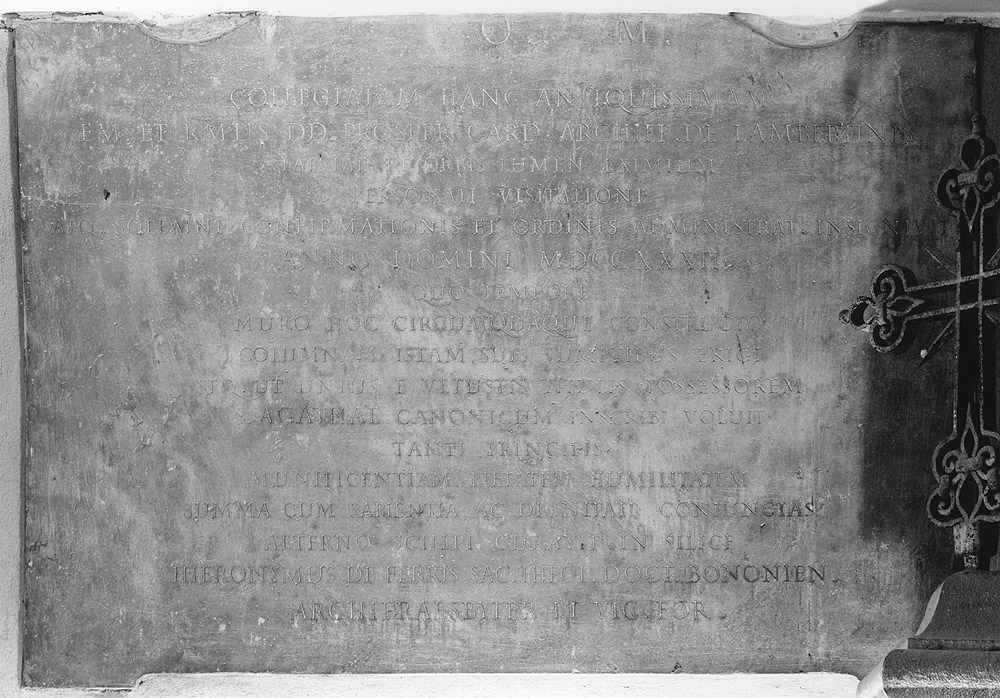 O. M.
COLLEGIATAM HANC ANTIQUISSIMAM
EM. ET RMUS DD. PROSPER CARD. ARCHIEP. DE LAMBERTINIS
ORBIS LUMEN EXIMIUM
PERSONALI VISITATIONE
ATQ. SOLEMNI CONFIRMATIONIS ET ORDINIS ADMINISTRAT. INSIGNIVIT
ANNO DOMINI MDCCXXXII
QUO TEMPORE
MURO HOC CIRCUMQUAQUE CONSTRUCTO
COLUMNAM ISTAM SUIS SUMPTIBUS ERIGI
UT UNIUS E VETUSTIS POSSESSOREM
S. AGATHAE CANONICUM INSCRIBI VOLUIT
TANTI PRINCIPIS
MUNIFICENTIAM PIETATEM HUMILITATEM
SUMMA CUM SAPIENTIA AC DIGNITATE CONIUNCTAS
AETERNO SCULPI CURAVIT IN SILICE
HIERONYMUS DE FERRIS SAC. THEOL. DOCT. BONONIEN.
ARCHIPRAESBYTER ET VIC. FOR.